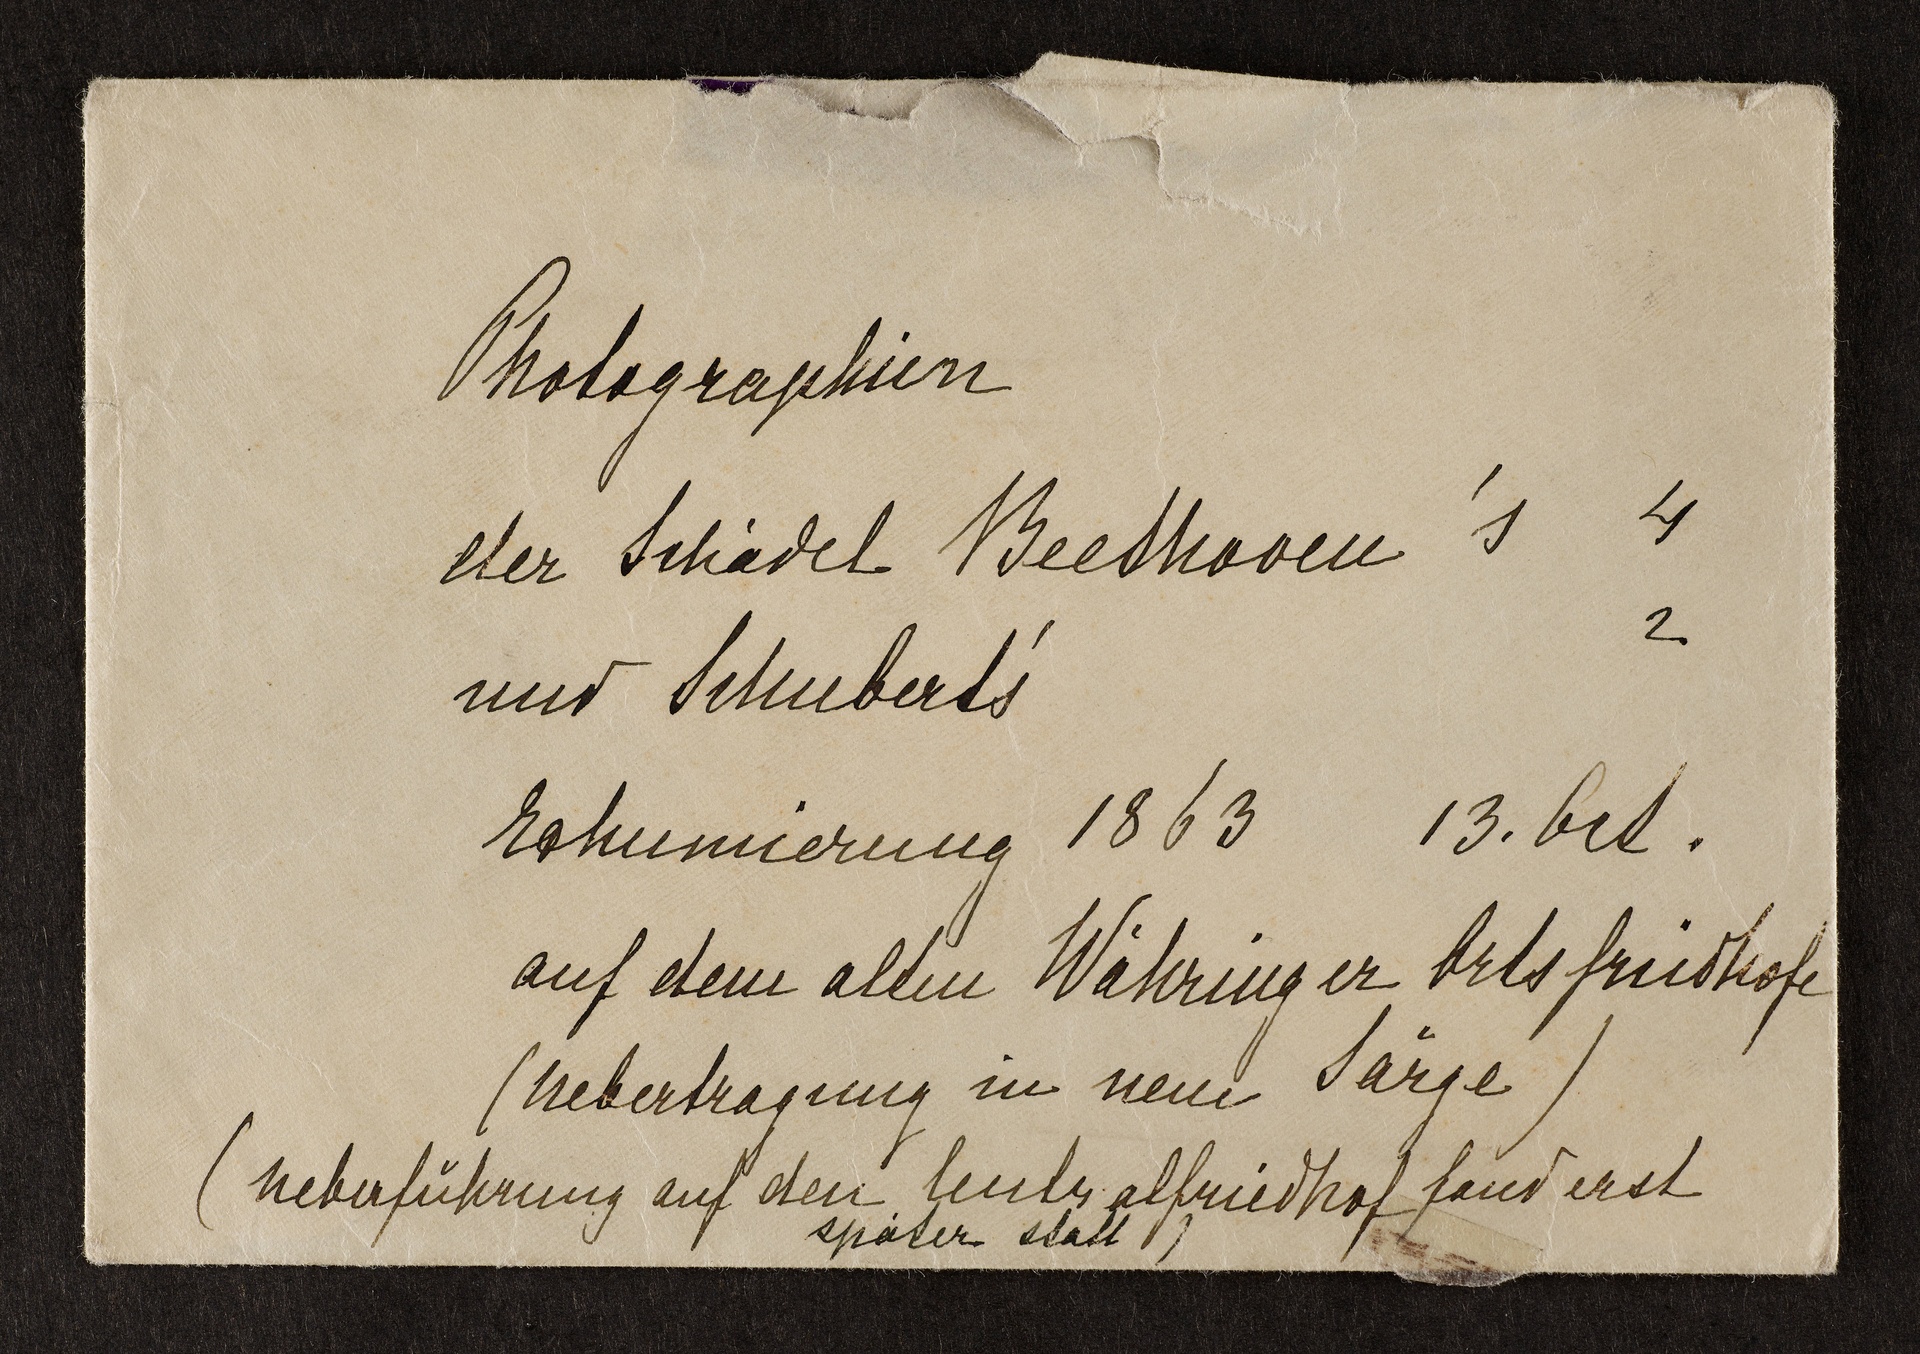 Photographien
der Schädel Beethoven's 4
2
und Schubert's
Exhumierung 1863 13. Oct.
auf dem alten Währinger Ortsfriedhofe
(Uebertragung in neue Särge)
(Ueberführung auf den Centralfriedhof fand erst
später statt)